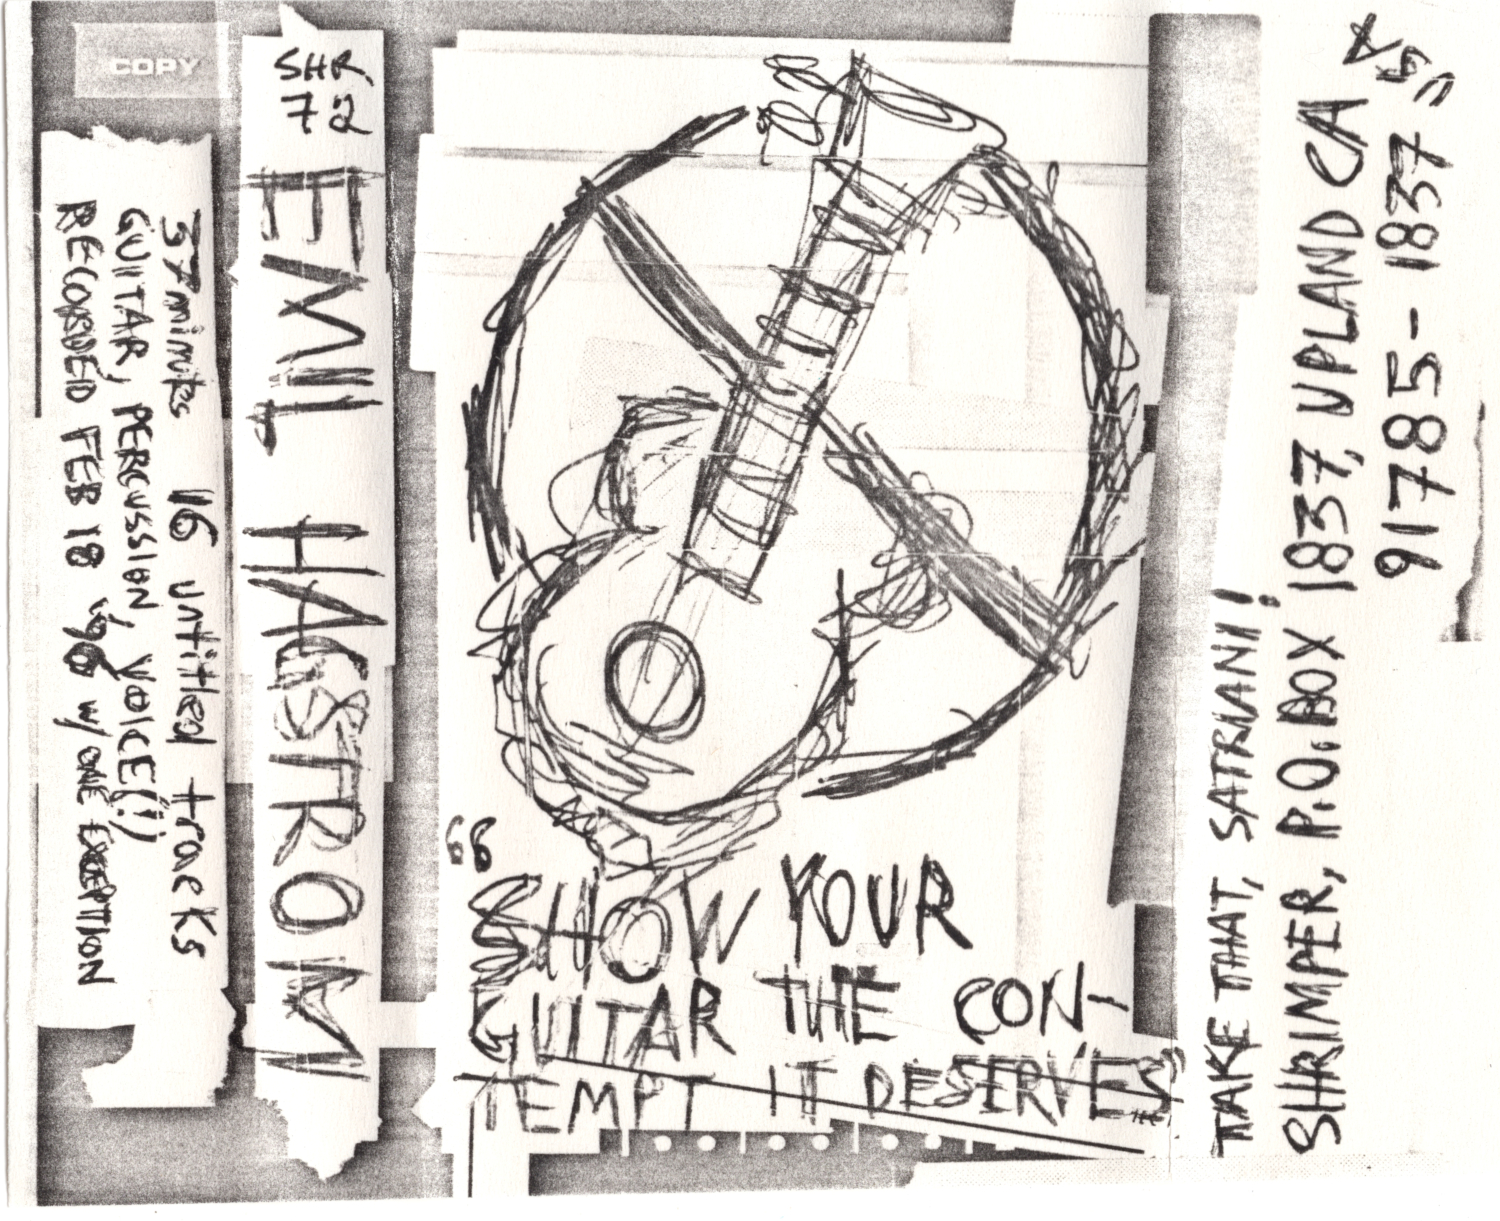 COPY
37 minutes 16 untitled tracks
GUITAR, PERCUSSION, VOICE(!)
RECORDED FEB 18 '96 w/ ONE EXCEPTION
SHR
72
EMIL HAGSTROM
"SHOW YOUR
GUITAR THE CON-
TEMPT IT DESERVES"
TAKE THAT, SATRIANI!
SHRIMPER, P.O. BOX 1837, UPLAND CA
91785-1837
USA